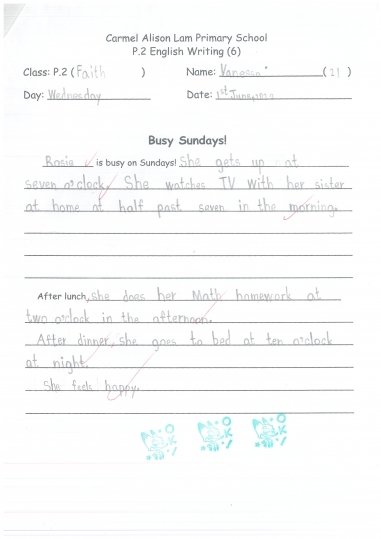 Carmel Alison Lam Primary School
P.2 English Writing (6)
Class: P.2 ( Faith ) Name: Vanessa ( 21 )
Day: Wednesday Date: 1st June,
Busy Sundays!
Rosie is busy on Sundays! She gets up at
seven o'clock. She watches TV with her sister
at home at half past seven in the morning.
After lunch, she does her Math homework at
two o'clock in the afternoon.
After dinner, she goes to bed at ten o'clock
at night.
She feels happy.